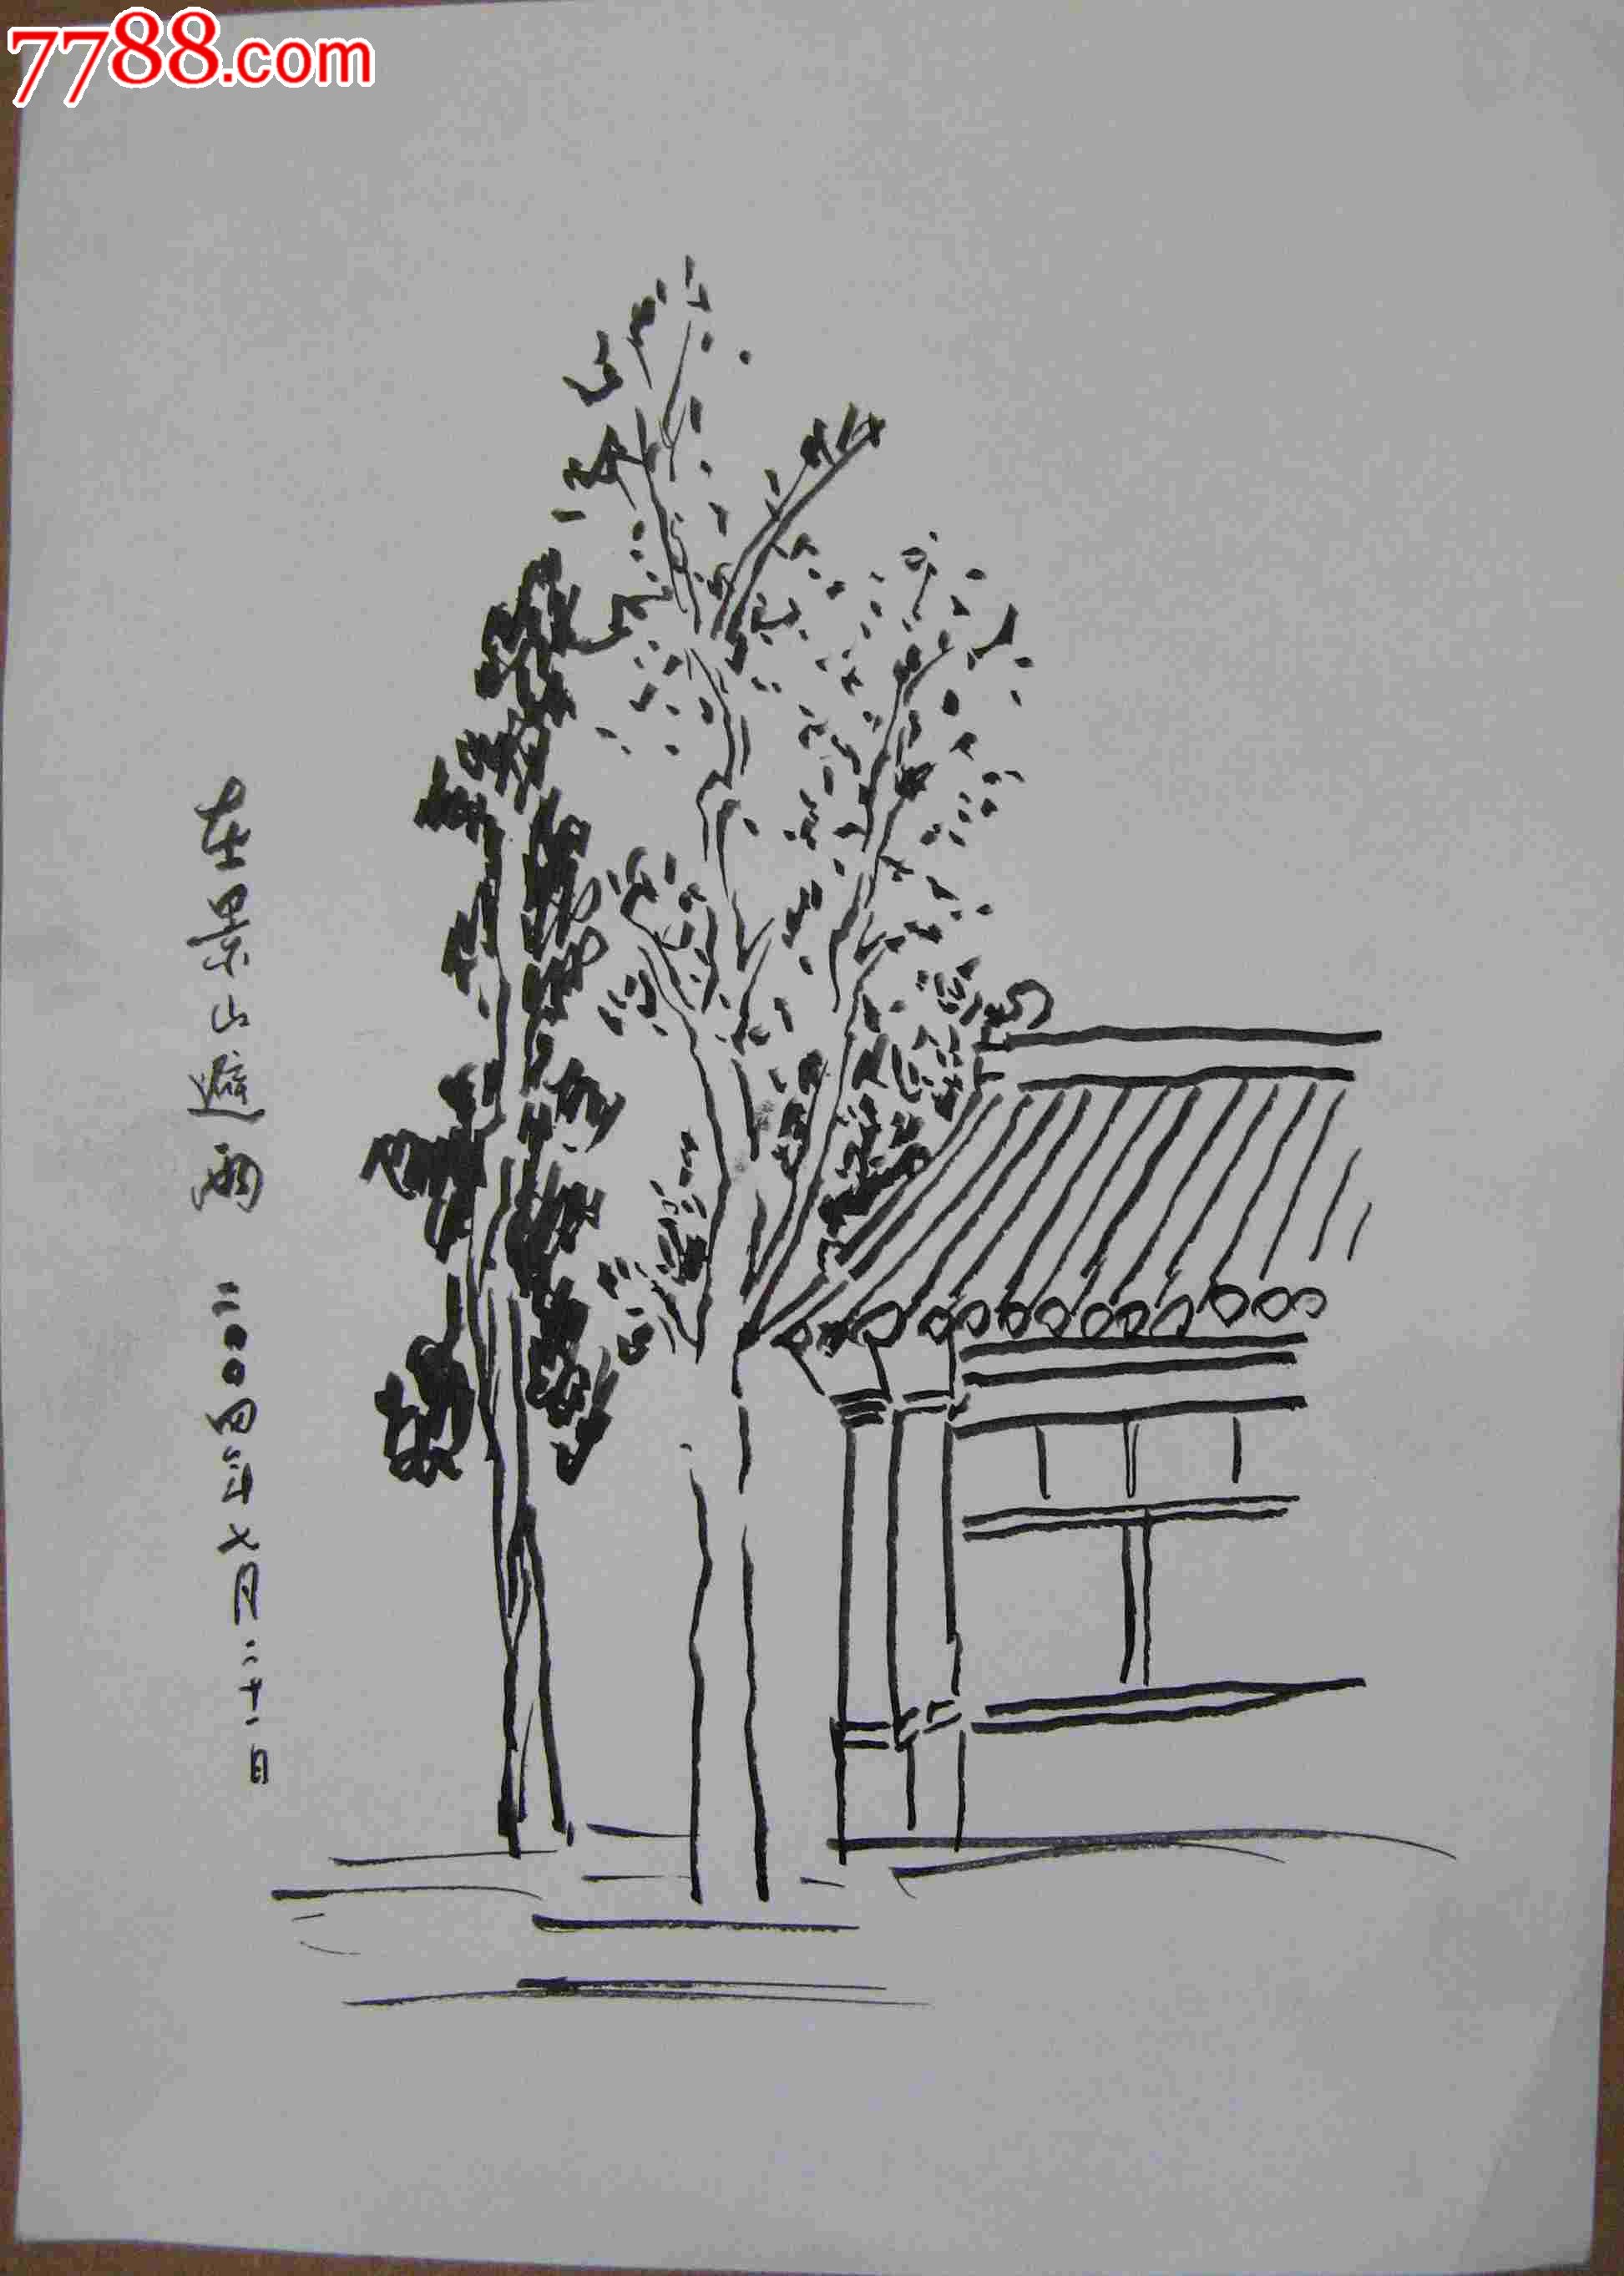 7788.com
在景山避雨 二〇〇四年七月二十一日